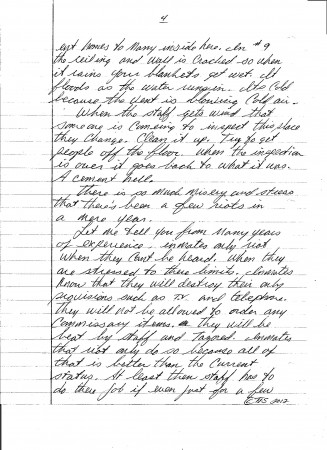 4
ent homes to many inside here. In #9
the ceiling and wall is cracked - so when
it rains your blankets get wet. It
floods as the water runs in. Its cold
because the vent is blowing cold air.
When the staff gets wind that
someone is comeing to inspect this place
they change. Clean it up. Try to get
people off the floor. When the inspection
is over it goes back to what it was.
A cement hell.
There is so much misery and stress
that there's been a few riots in
a mere year.
Let me tell you from many years
of experience. inmates only riot
when they can't be heard. When they
are stressed to there limits. Inmates
know that they will destroy their only
provisions such as TV. and telephone.
They will not be allowed to order any
commissary items. they will be
beat by staff and tazored. Inmates
that riot only do so because all of
that is better than the current
status. At least then staff has to
do there job if even just for a few
© TFS 2012